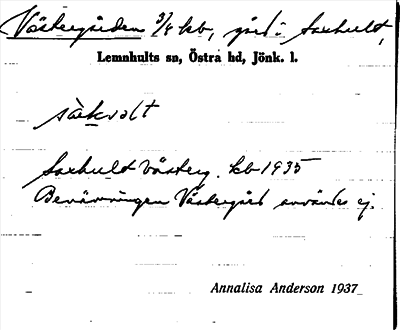 Västergården 3/8 kb, gård i Saxhult,
Lemnhults sn, Östra hd, Jönk. l.
sàkvəlt
Saxhult Västerg. kb 1935
Benämningen Västergård användes ej.
Annalisa Anderson 1937